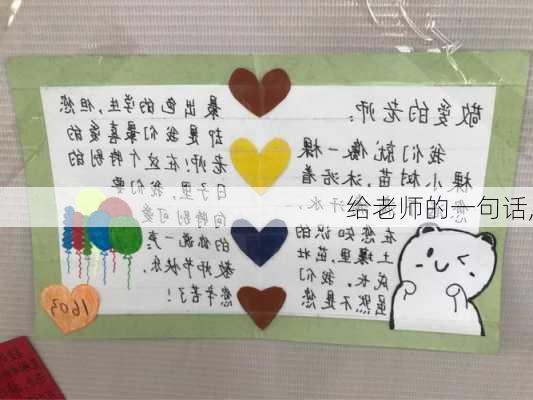 敬爱的老师：
我们就像一棵
棵小树苗，沐浴着
汗水，
在您知识的
土壤里，茁壮
成长。我们
虽然不是您
最出色的学生，但您
却是我们最喜爱的
老师！在这个特别的
日子里，我们要
向特别可爱
的您说一声：
教师节快乐，
您辛苦了！
1603
给老师的一句话,